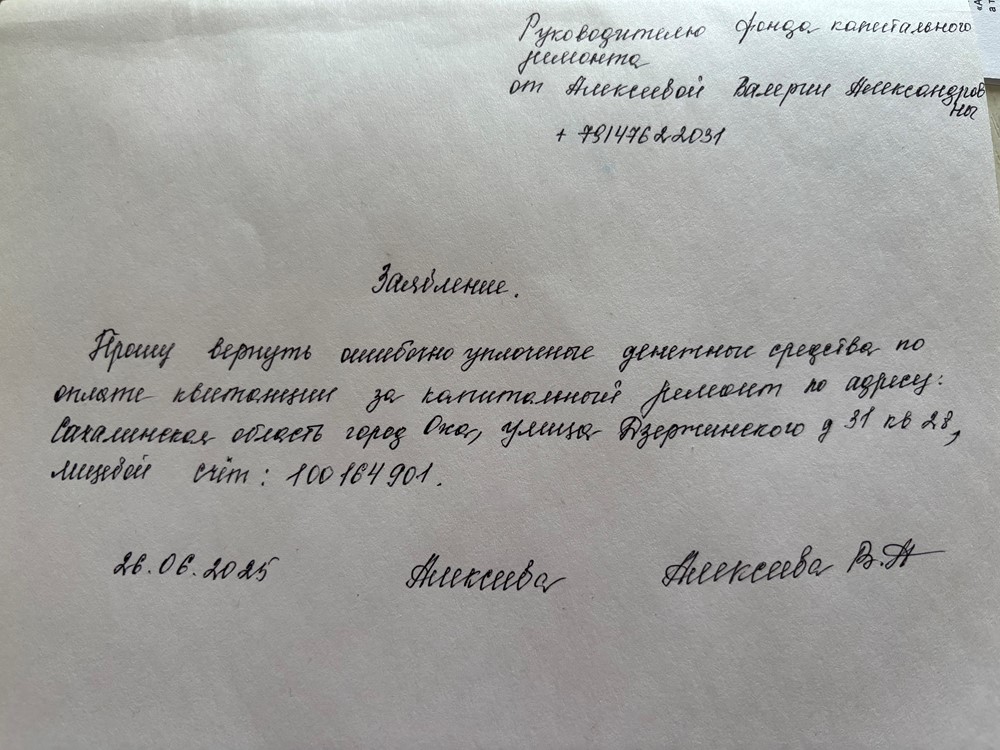 Руководителю фонда капитального
ремонта
от Алексеевой Валерии Александров
ны
+ 79147622031
Заявление.
Прошу вернуть ошибочно уплоченные денежные средства по
оплате квитанции за капитальный ремонт по адресу:
Сахалинская область город Оха, улица Дзержинского д 31 кв 28,
лицевой счёт: 100164901.
26.06.2025 Алексеева Алексеева В.А